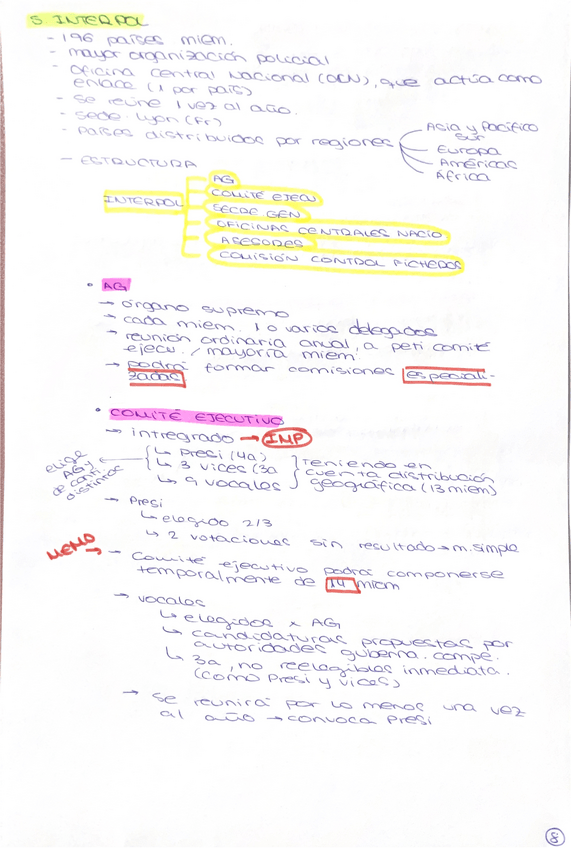 5. INTERPOL
- 196 países miem.
- mayor organización policial
- Oficina Central Nacional (OCN), que actúa como
enlace (1 por país)
- se reúne 1 vez al año.
- sede: Lyon (Fr)
- Países distribuidos por regiones
Asia y Pacífico
sur
Europa
Américas
África
- ESTRUCTURA
INTERPOL
AG
COMITÉ EJECU
SECRE GEN
OFICINAS CENTRALES NACIO
ASESORES
COMISIÓN CONTROL FICHEROS
• AG
→ órgano supremo
→ cada miem. 1 o varios delegados
→ reunión ordinaria anual, a peti comité
ejecu. / mayoría miem.
→ podrá formar comisiones especiali-
zadas
• COMITÉ EJECUTIVO
→ intregrado → IMP
↳ Presi (4a)
↳ 3 vices (3a
↳ 9 vocales
Teniendo en
cuenta distribución
geográfica (13 miem)
elige
AG y
de conti.
distintos
→ Presi
↳ elegido 2/3
↳ 2 votaciones sin resultado → m. simple
MEMO →
- Comité ejecutivo podrá componerse
temporalmente de 14 miem
→ vocales
↳ elegidos x AG
↳ candidaturas propuestas por
autoridades guberna. compe.
↳ 3a, no reelegibles inmediata.
(como Presi y vices)
→ se reunirá por lo menos una vez
al año → convoca Presi
8